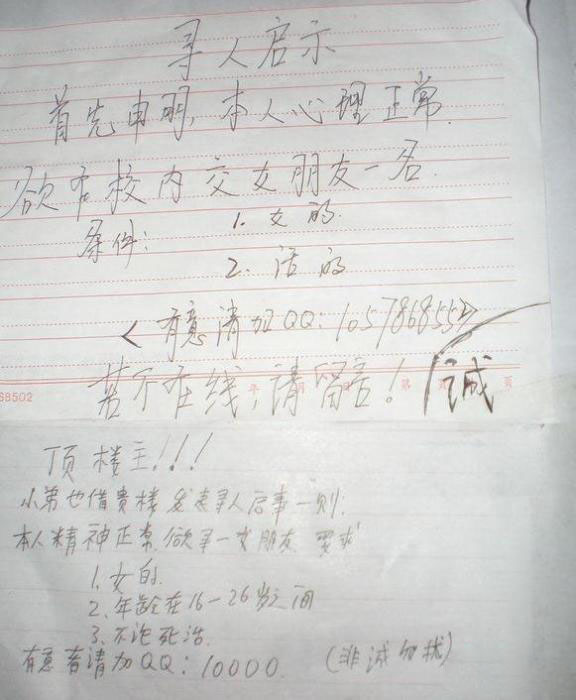 寻人启示
首先申明,本人心理正常.
欲在校内交女朋友一名.
条件: 1. 女的.
2. 活的
<有意请加QQ: 105786855>
若不在线,请留言! 诚
68502 年 月 第 页
顶楼主!!!
小弟也借贵楼发表寻人启事一则:
本人精神正常,欲寻一女朋友,要求
1. 女的.
2. 年龄在16-26岁之间
3. 不论死活.
有意者请加QQ: 10000. (非诚勿扰)